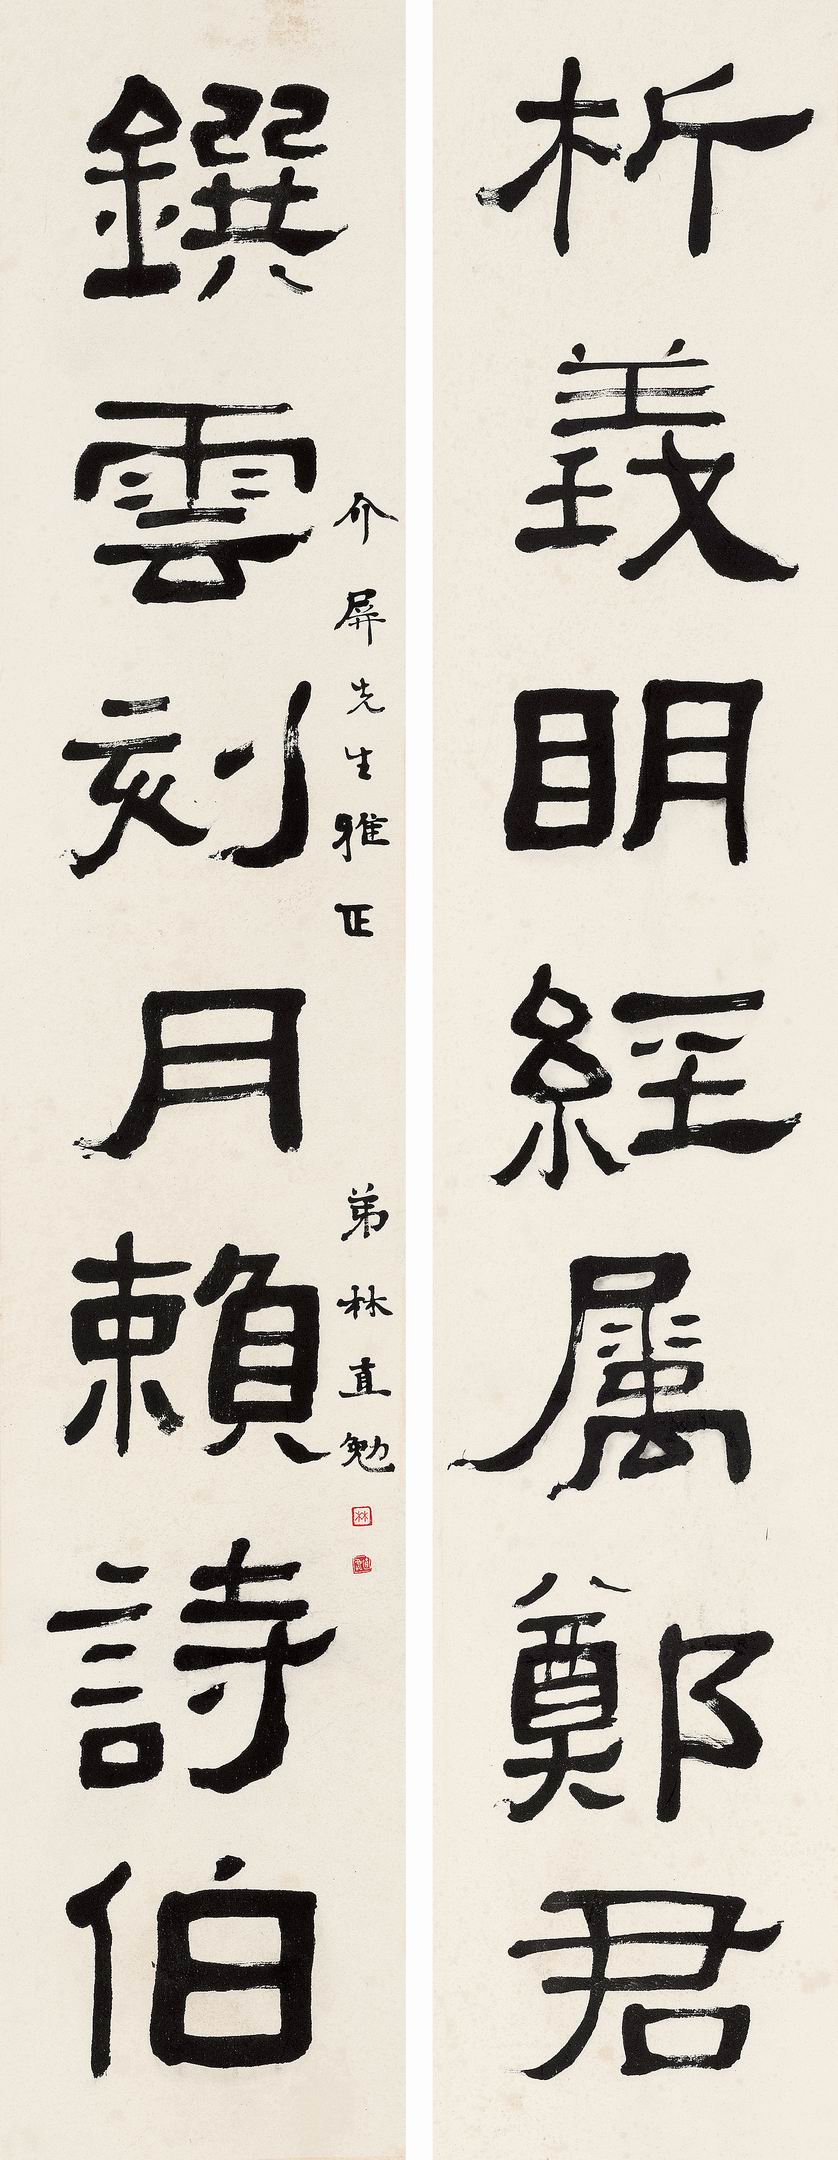 析義明經屬鄭君
鐉雲刻月賴詩伯
介屏先生雅正
弟林直勉
林